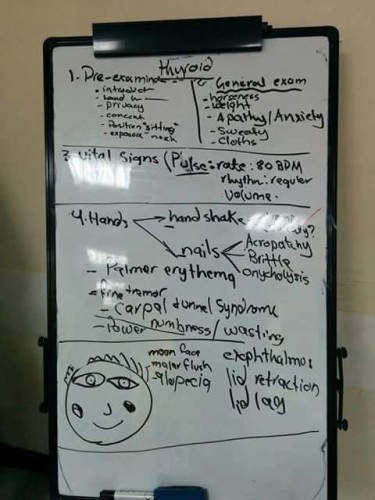 thyroid
1. Pre-examin
- introduct
- hand
- privacy
- concent
- Position "sitting"
- exposed neck
General exam
- horseness
- weight
- Apathy/Anxiety
- Sweaty
- Cloths
3. vital signs (Pulse: rate: 80 BPM
rhythm: reguler
volume.
4. Hands → hand shake
nails
Acropatchy
Brittle
onycholysis
- Palmer erythema
- fine tremor
- Carpal tunnel Syndrome
- Power numbness / wasting
moon face
malar flush
alopecia
exophthalmos
lid retraction
lid lag